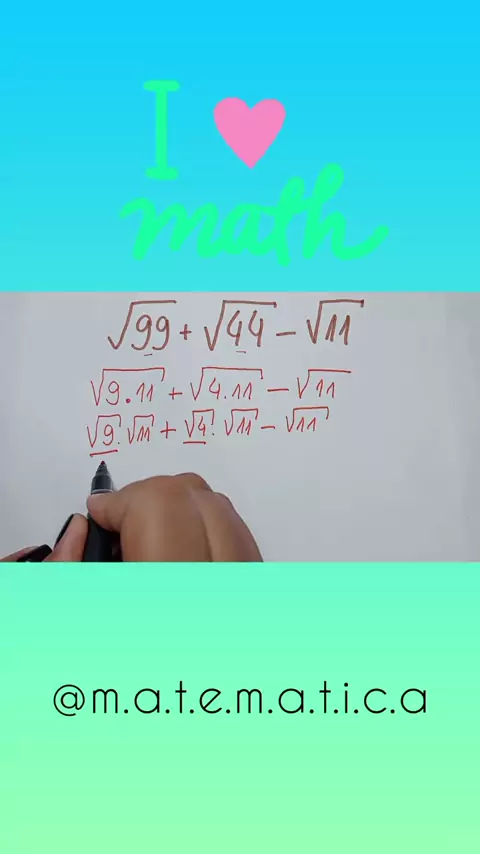 I ♥
math
√99 + √44 - √11
√9.11 + √4.11 - √11
√9.√11 + √4.√11 - √11
@m.a.t.e.m.a.t.i.c.a